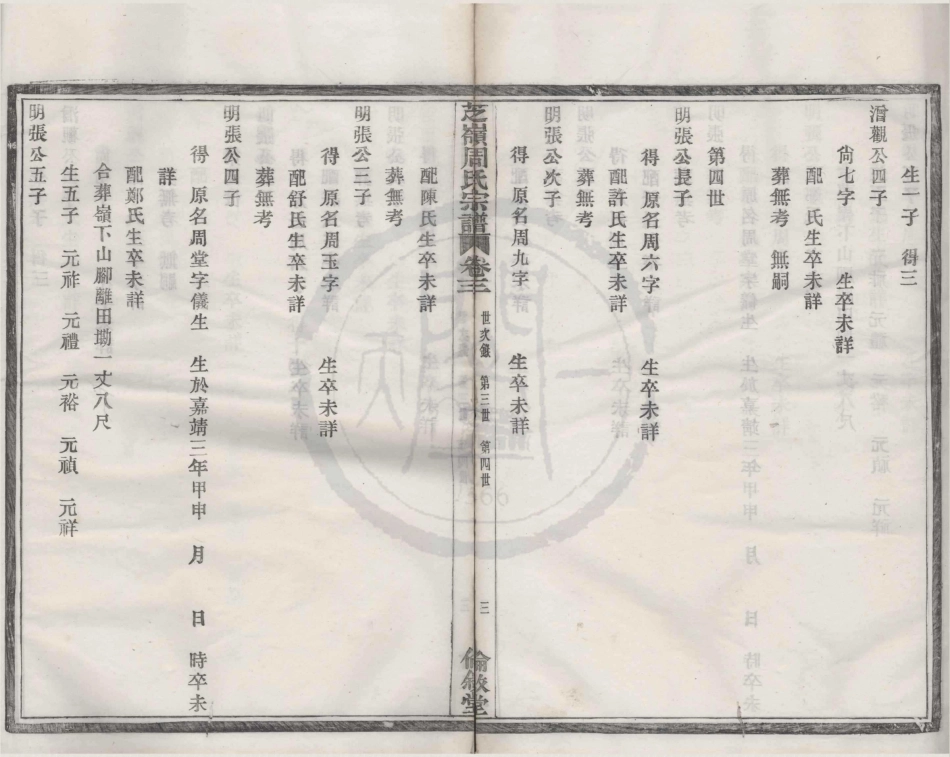 生一子 得三
公四子
尙七字 生卒未詳
配 氏生卒未詳
葬無考 無嗣
第四世
明張公長子
得 原名周六字 生卒未詳
配許氏生卒未詳
葬無考
明張公次子
得 原名周九字 生卒未詳
芝嶺周氏宗譜 卷三 世次錄 第三世 第四世 三 倫敘堂
配陳氏生卒未詳
葬無考
明張公三子
得 原名周玉字 生卒未詳
配舒氏生卒未詳
葬無考
明張公四子
得 原名周堂字儀生 生於嘉靖三年甲申 月 日 時卒未
詳
配鄭氏生卒未詳
合葬嶺下山腳離田塝一丈八尺
生五子 元祚 元禮 元裕 元禎 元祥
明張公五子